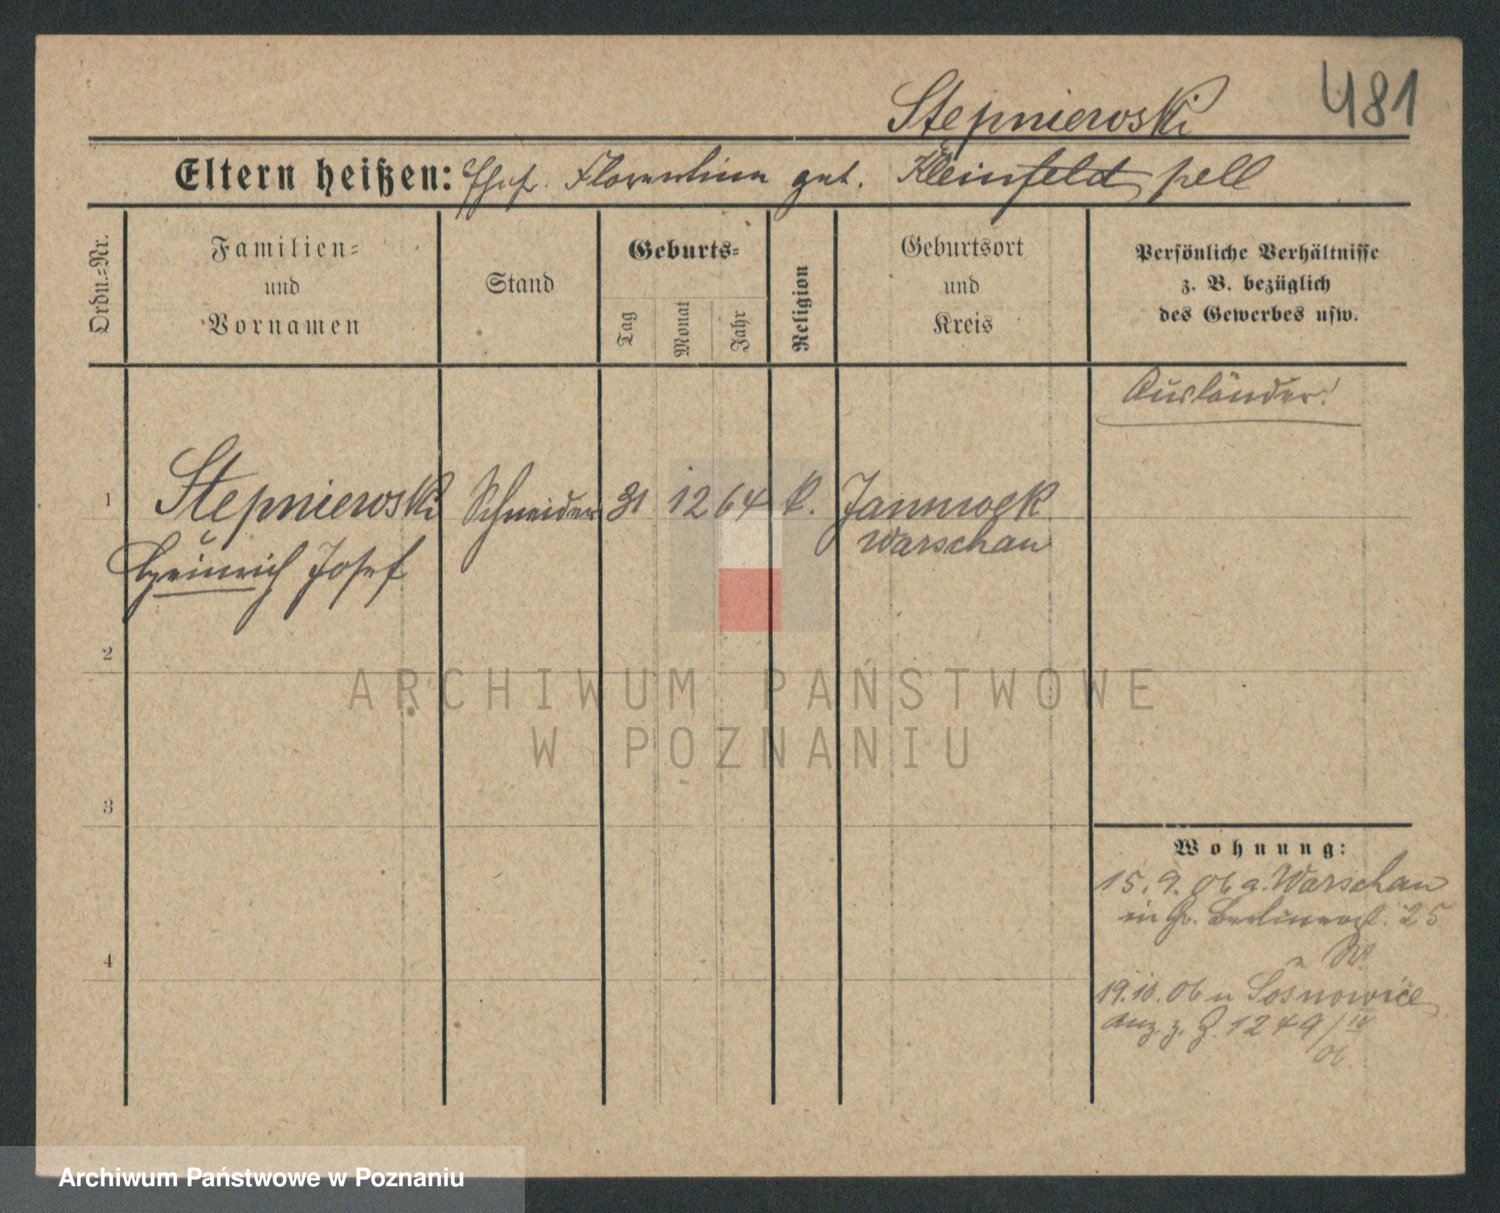 481
Stepniewski
Eltern heißen: Ehef. Florentina geb. Kleinfeldt sell
Ordn.-Nr.
Familien-
und
Vornamen
Stand
Geburts-
Tag
Monat
Jahr
Religion
Geburtsort
und
Kreis
Persönliche Verhältnisse
z. B. bezüglich
des Gewerbes usw.
Ausländer!
1
Stepniewski
Heinrich Josef
Schneider
31
12
64
k.
Warschau
2
3
4
Wohnung:
15. 9. 06 a. Warschau
in Gr. Berlinerst. 25
19. 10. 06 n Sosnowice
Anz. z. J. 1249/IV
06
ARCHIWUM PAŃSTWOWE
W POZNANIU
Archiwum Państwowe w Poznaniu